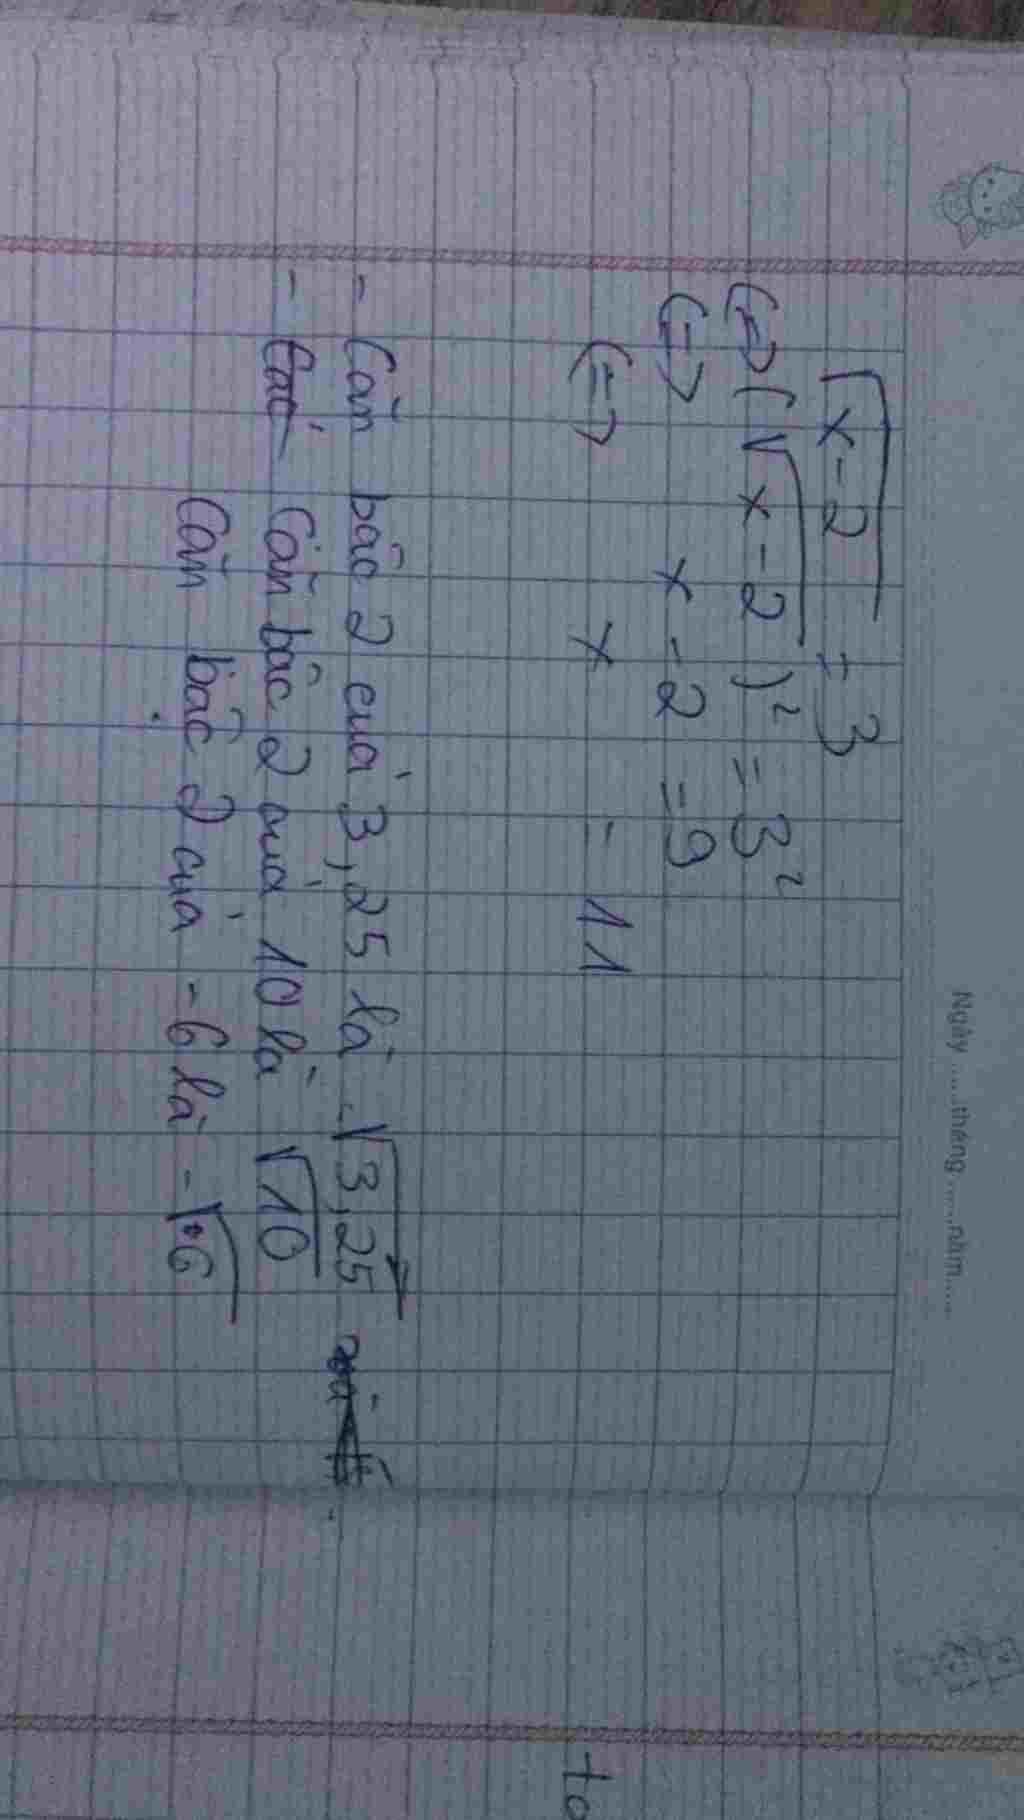 Ngày ..... tháng ...... năm .....
√x-2 = 3
(=) (√x-2)² = 3²
(=) x-2 = 9
(=) x = 11
- Căn bâc 2 của 3,25 là √3,25
- Các Căn bâc 2 của 10 là √10
Căn bâc 2 của -6 là -√6
to